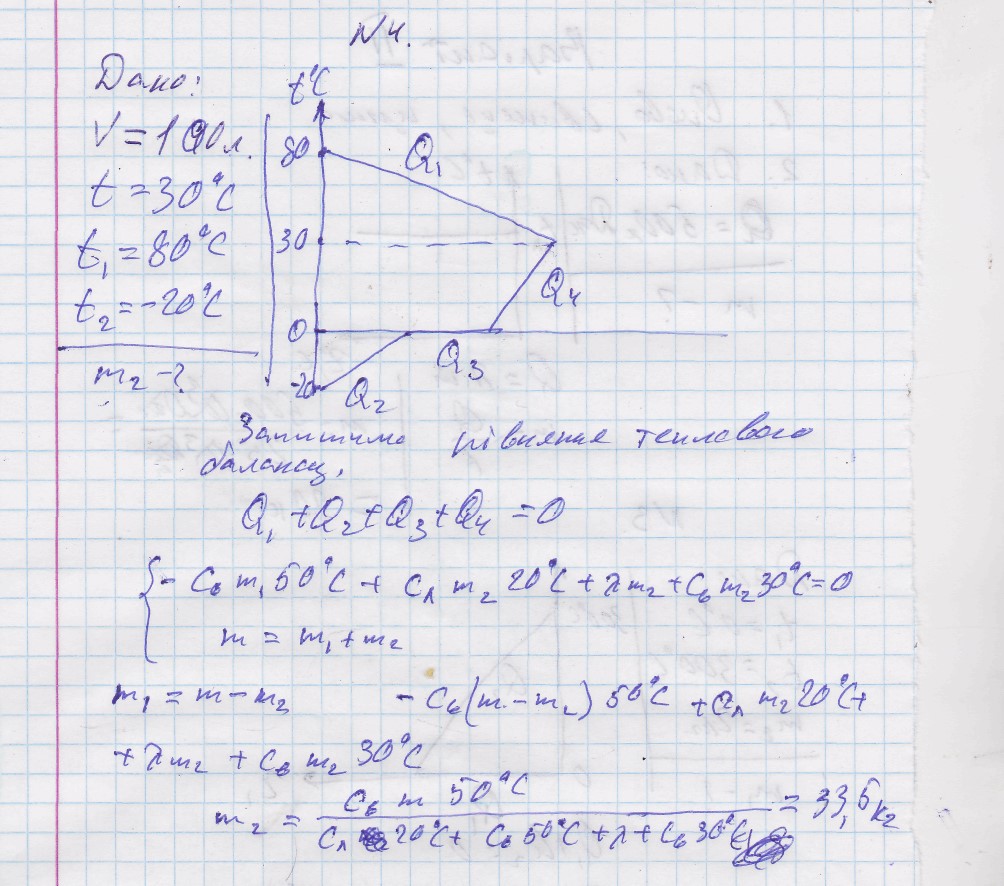 N4.
Дано:
V = 100 л.
t = 30°C
t₁ = 80°C
t₂ = -20°C
m₂ - ?
t°C
80
30
0
-20
Q₁
Q₄
Q₃
Q₂
Запишимо рівняння теплового
балансу.
Q₁ + Q₂ + Q₃ + Q₄ = 0
{ - Cв m₁ 50°C + Cл m₂ 20°C + λm₂ + Cв m₂ 30°C = 0
m = m₁ + m₂
m₁ = m - m₂ - Cв(m - m₂) 50°C + Cл m₂ 20°C +
+ λm₂ + Cв m₂ 30°C
m₂ = Cв m 50°C / Cл 20°C + Cв 50°C + λ + Cв 30°C = 33,5 кг